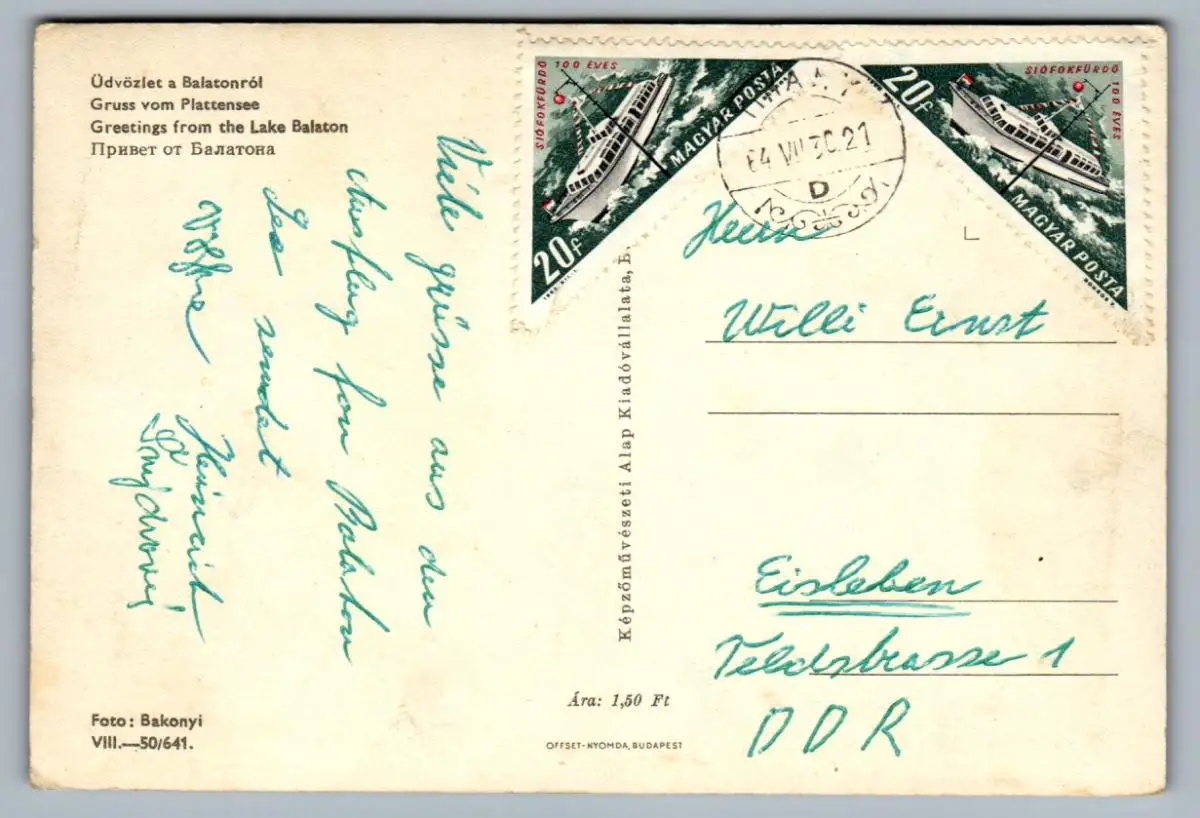 Üdvözlet a Balatonról
Gruss vom Plattensee
Greetings from the Lake Balaton
Привет от Балатона
Viele grüsse aus den
Ausflug fon Balaton
See sendet
Heinrich
Foto: Bakonyi
VIII.—50/641.
Képzőművészeti Alap Kiadóvállalata, B.
Ára: 1,50 Ft
OFFSET-NYOMDA, BUDAPEST
SIÓFOKFÜRDŐ 100 ÉVES
MAGYAR POSTA
20f
64 VII 30. 21
D
SIÓFOKFÜRDŐ 100 ÉVES
20f
MAGYAR POSTA
Herrn
Willi Ernst
Eisleben
Feldstrasse 1
DDR